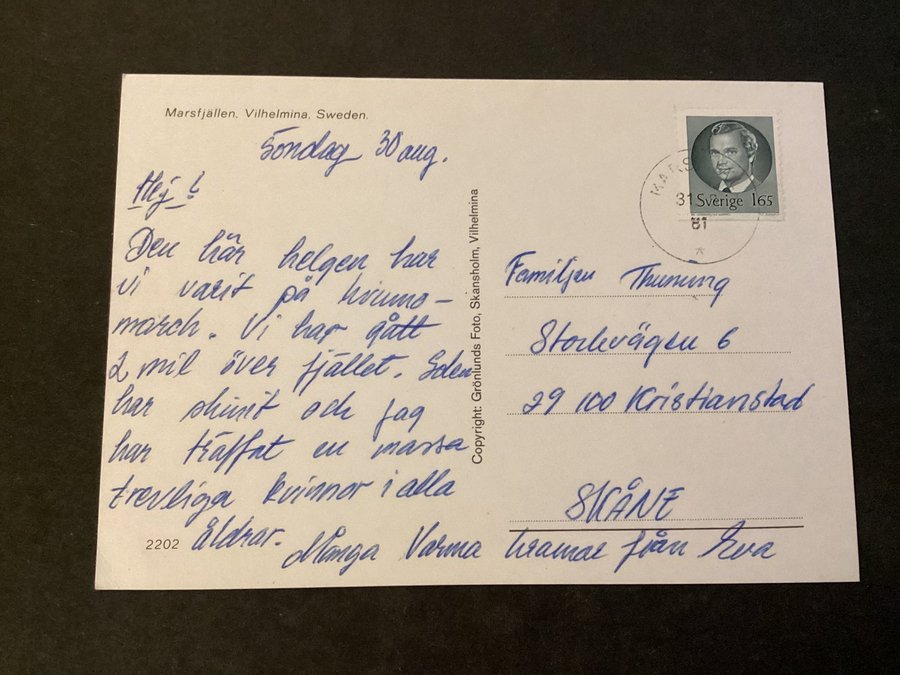 Marsfjällen. Vilhelmina. Sweden.
Söndag 30 aug.
Hej!
Den här helgen har
vi varit på kvinno-
march. Vi har gått
2 mil över fjället. Solen
har skinit och jag
har träffat en massa
trevliga kvinnor i alla
åldrar.
Många Varma kramar från Eva
2202
Copyright: Grönlunds Foto, Skansholm, Vilhelmina
Sverige 165
MARS
31
81
Familjen Thunung
Stockvägen 6
29 100 Kristianstad
SKÅNE